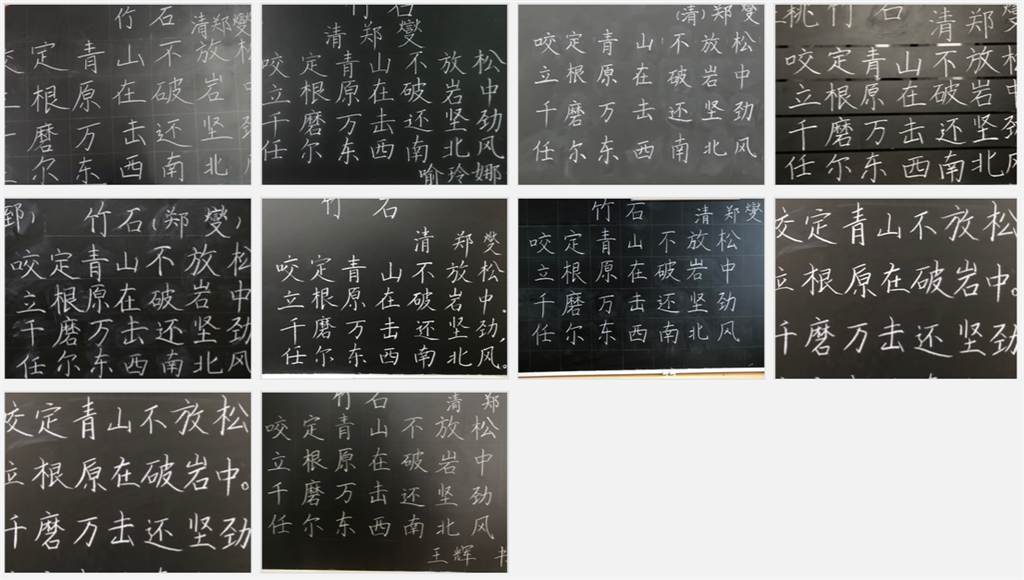 竹石
清郑燮
咬定青山不放松
根原在破岩
磨万击还坚劲
尔东西南北
竹石
清郑燮
咬定青山不放松
立根原在破岩中
千磨万击还坚劲
任尔东西南北风
喻玲娜
(清)郑燮
咬定青山不放松
立根原在破岩中
千磨万击还坚劲
任尔东西南北风
桃竹石
清郑燮
咬定青山不放松
立根原在破岩中
千磨万击还坚劲
任尔东西南北风
竹石(郑燮)
咬定青山不放松
立根原在破岩中
千磨万击还坚劲
任尔东西南北风
竹石
清郑燮
咬定青山不放松
立根原在破岩中.
千磨万击还坚劲,
任尔东西南北风。
竹石
清郑燮
咬定青山不放松
立根原在破岩中
千磨万击还坚劲
任尔东西南北风
咬定青山不放松
立根原在破岩中。
千磨万击还坚劲
咬定青山不放松
立根原在破岩中。
千磨万击还坚劲
竹石
清郑
咬定青山不放松
立根原在破岩中
千磨万击还坚劲
任尔东西南北风
王辉书